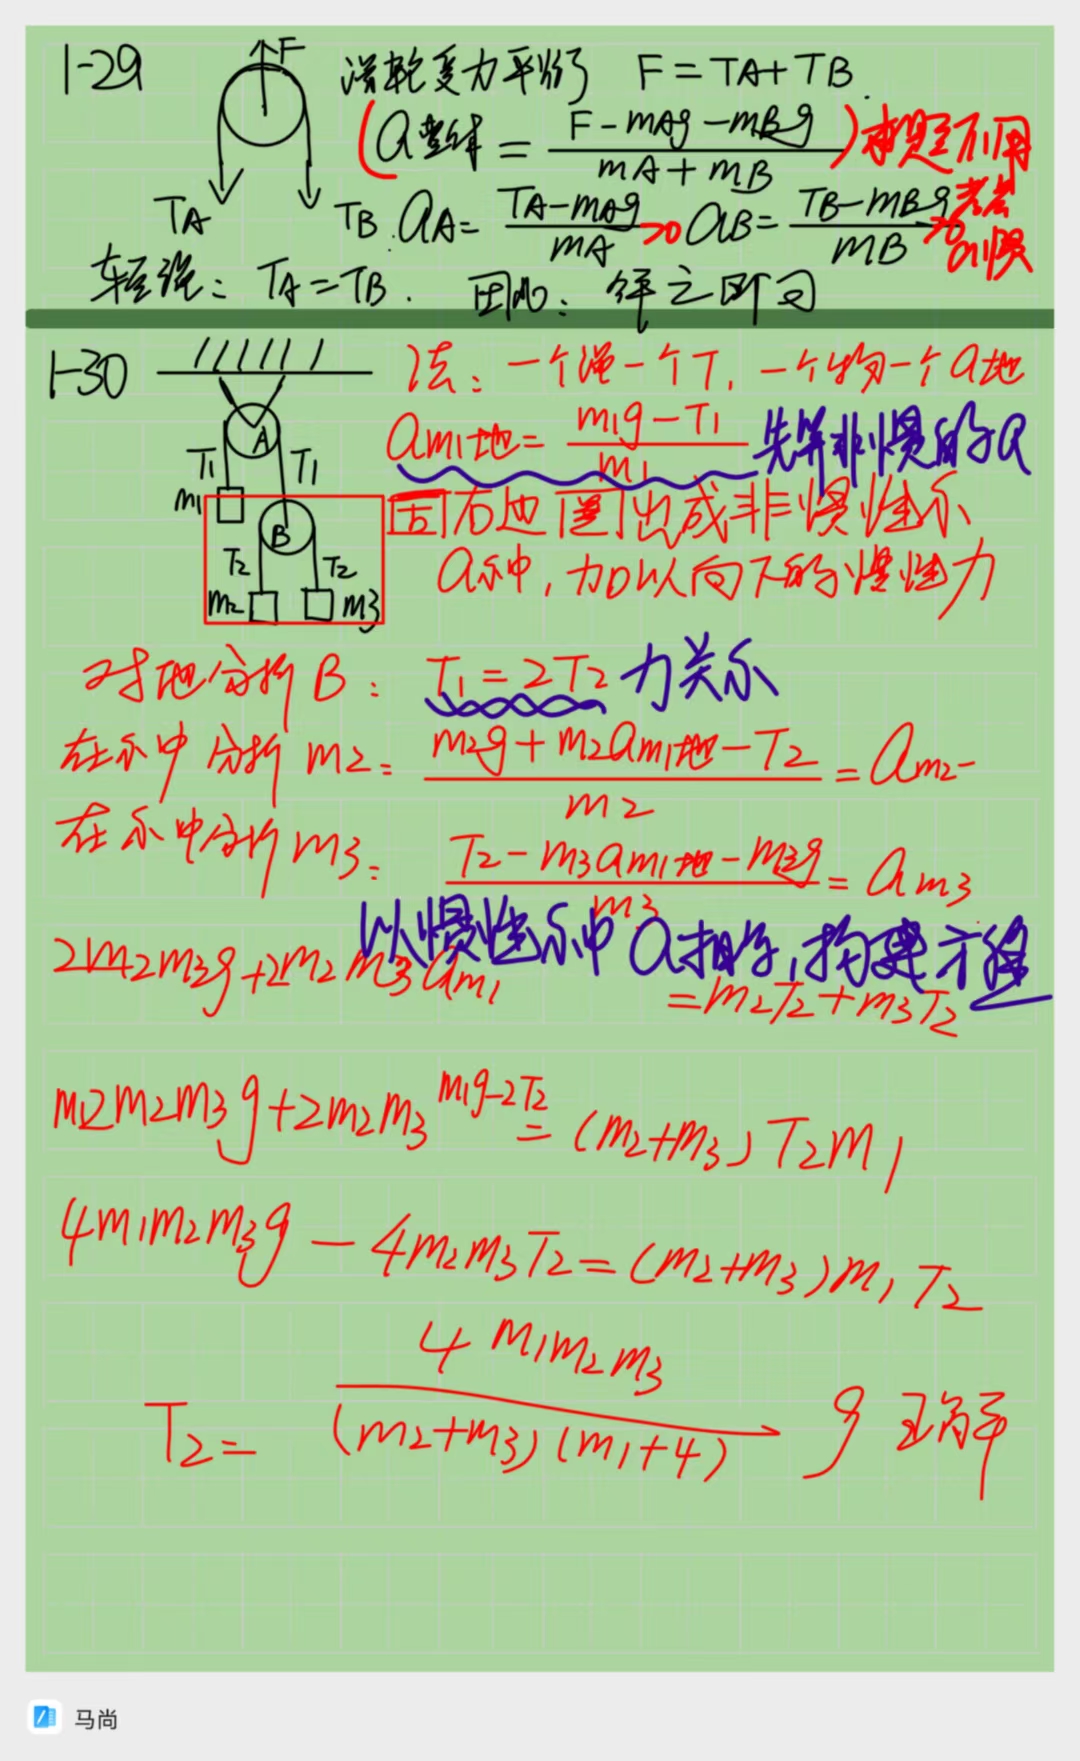 1-29 F 滑轮受力平衡 F=TA+TB
(a整体 = (F-mAg-mBg)/(mA+mB)) 本题不用考虑a惯
TA TB aA= (TA-mAg)/mA >0 aB= (TB-mBg)/mB >0
轻绳: TA=TB. 因此: 解之即可
1-30 法: 一个绳一个T, 一个物一个a地
A T1 T1 m1 am1地= (m1g-T1)/m1 先算非惯的a
B T2 T2 m2 m3 右边 出成非惯性系
a系中, 加以向下的惯性力
对地分析B: T1=2T2 力关系
在系中分析m2: (m2g+m2am1地-T2)/m2 = am2-
在系中分析m3: (T2-m3am1地-m3g)/m3 = am3
以惯性系中a相等, 构建方程
2m2m3g+2m2m3am1 =m2T2+m3T2
m12m2m3g+2m2m3 m1g-2T2 = (m2+m3)T2m1
4m1m2m3g - 4m2m3T2=(m2+m3)m1T2
T2= 4m1m2m3/((m2+m3)(m1+4)) g
马尚